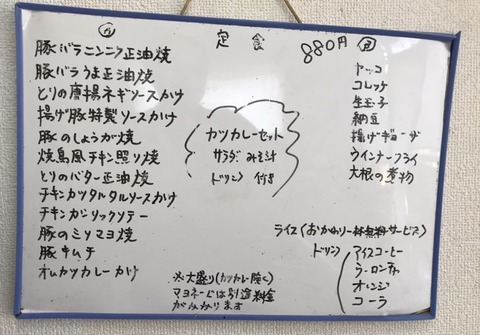 定食 880円
豚バラニンニク正油焼
豚バラうま正油焼
とりの唐揚ネギソースかけ
揚げ豚特製ソースかけ
豚のしょうが焼
焼鳥風チキン照り焼
とりのバター正油焼
チキンカツタルタルソースかけ
チキンガーリックソテー
豚のミソマヨ焼
豚キムチ
オムカツカレーかけ
カツカレーセット
サラダ みそ汁
ドリンク 付き
※大盛り(カツカレー除く)
マヨネーズは別途料金
がかかります
ヤッコ
コロッケ
生玉子
納豆
揚げギョーザ
ウインナーフライ
大根の煮物
ライス(おかわり一杯無料サービス)
ドリンク
アイスコーヒー
ウーロン茶
オレンジ
コーラ